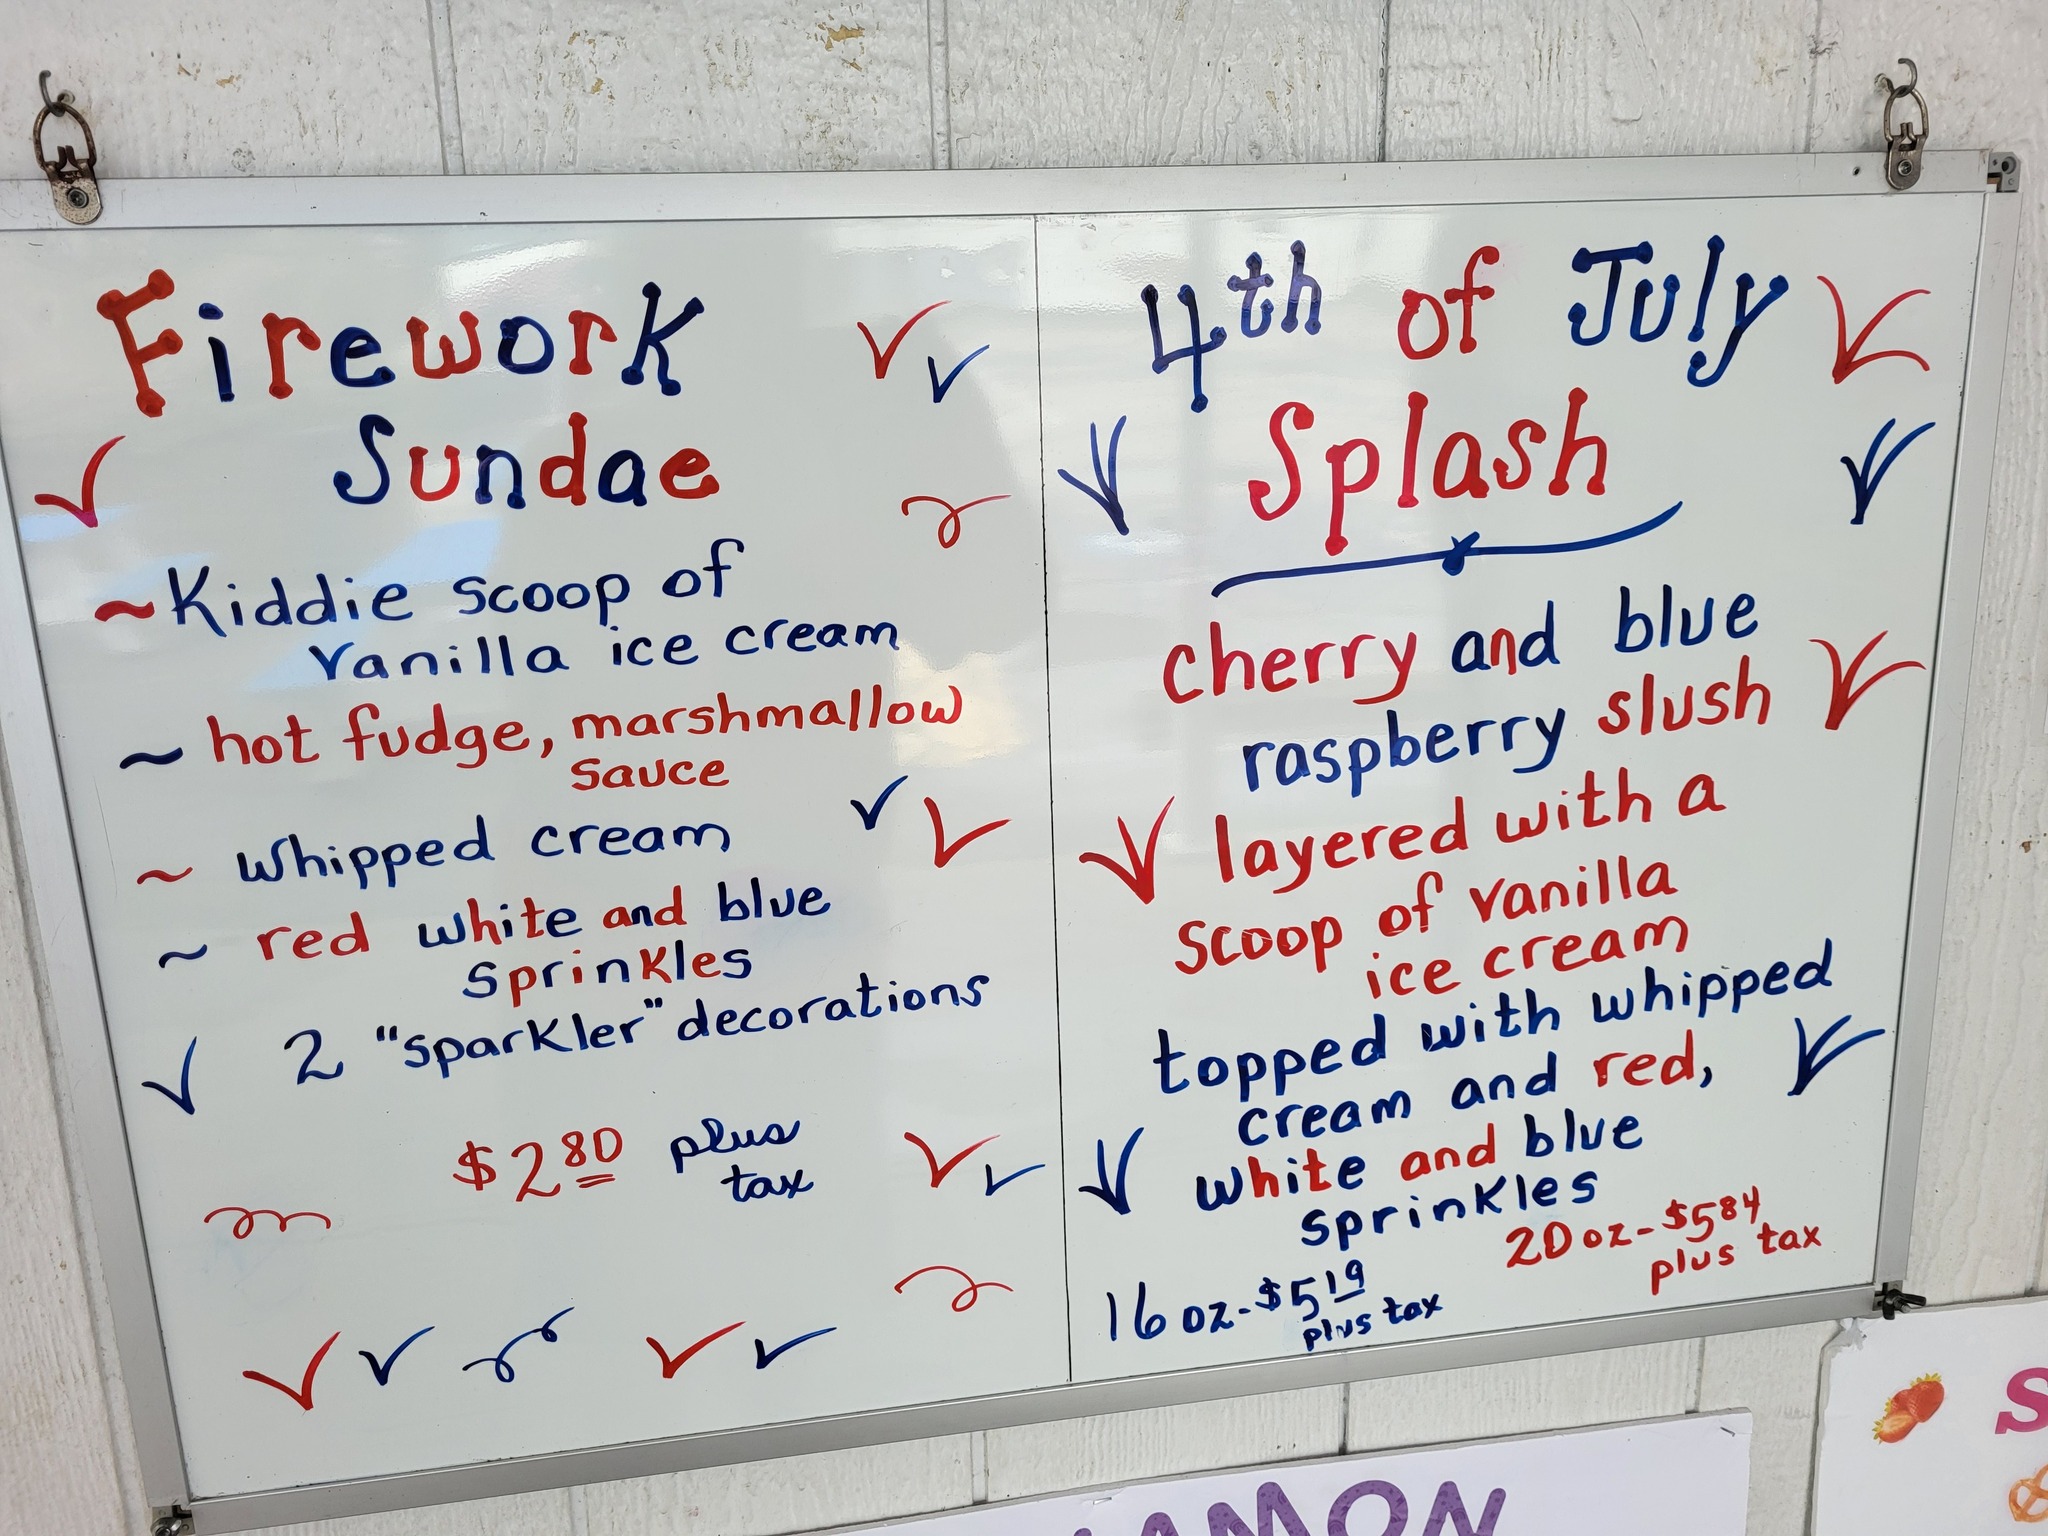 Firework
Sundae
~Kiddie scoop of
vanilla ice cream
~ hot fudge, marshmallow
sauce
~ whipped cream
~ red white and blue
sprinkles
2 "sparkler" decorations
$2.80 plus
tax
4th of July
Splash
cherry and blue
raspberry slush
layered with a
scoop of vanilla
ice cream
topped with whipped
cream and red,
white and blue
sprinkles
16 oz-$5.19
plus tax
20 oz-$5.84
plus tax